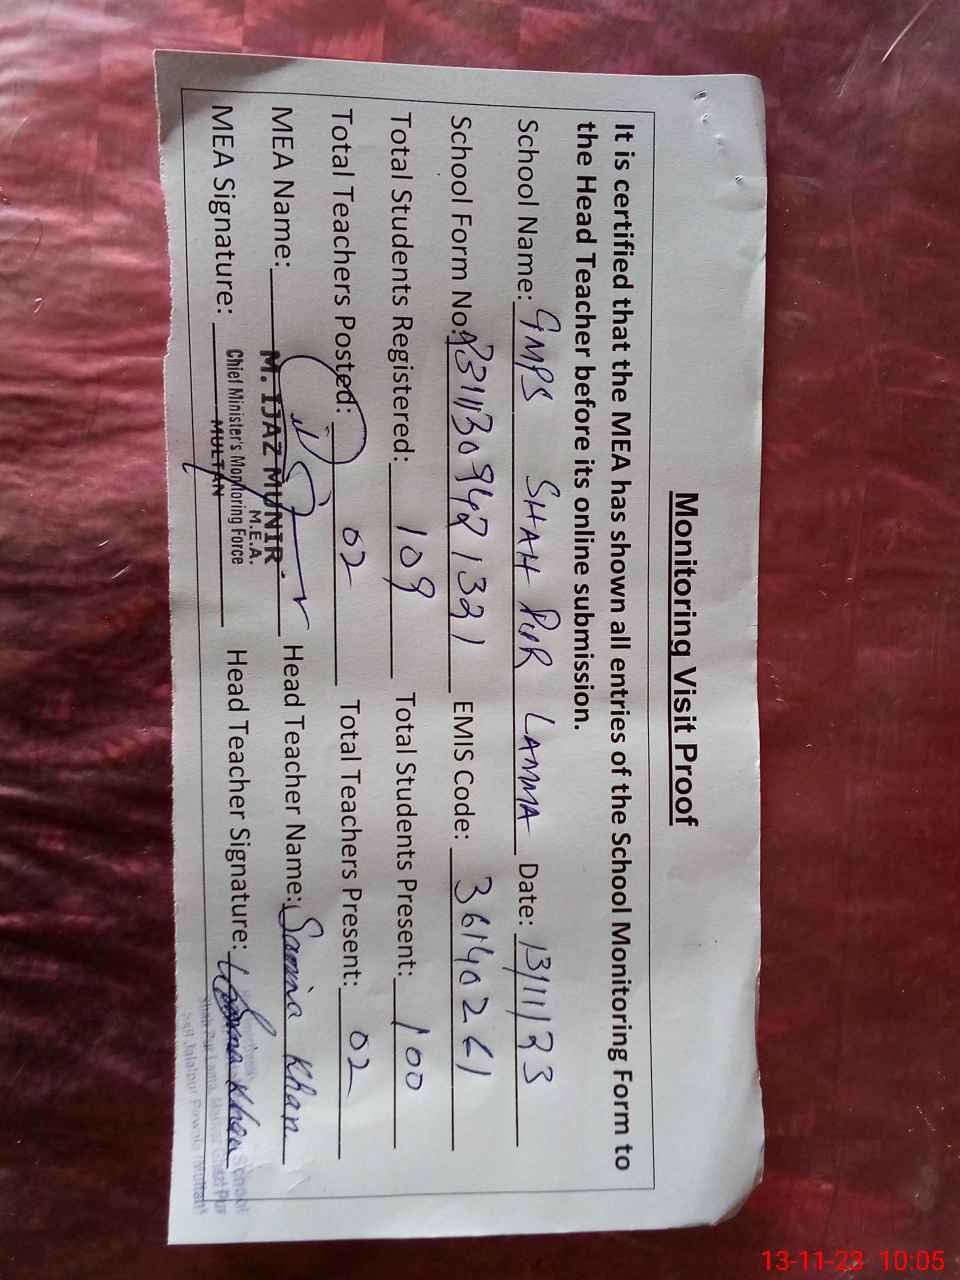 Monitoring Visit Proof
It is certified that the MEA has shown all entries of the School Monitoring Form to
the Head Teacher before its online submission.
School Name: GMPS SHAH PUR LAMMA Date: 13/11/23
School Form No: 2311309421321 EMIS Code: 36140261
Total Students Registered: 109 Total Students Present: 100
Total Teachers Posted: 02 Total Teachers Present: 02
MEA Name: M. IJAZ MUNIR Head Teacher Name: Samina Khan
M.E.A.
Chief Minister's Monitoring Force
MEA Signature: MULTAN Head Teacher Signature: Khan
School
Shah Pur Lama,
Jalalpur Pirwala (Multan)
13-11-23 10:05